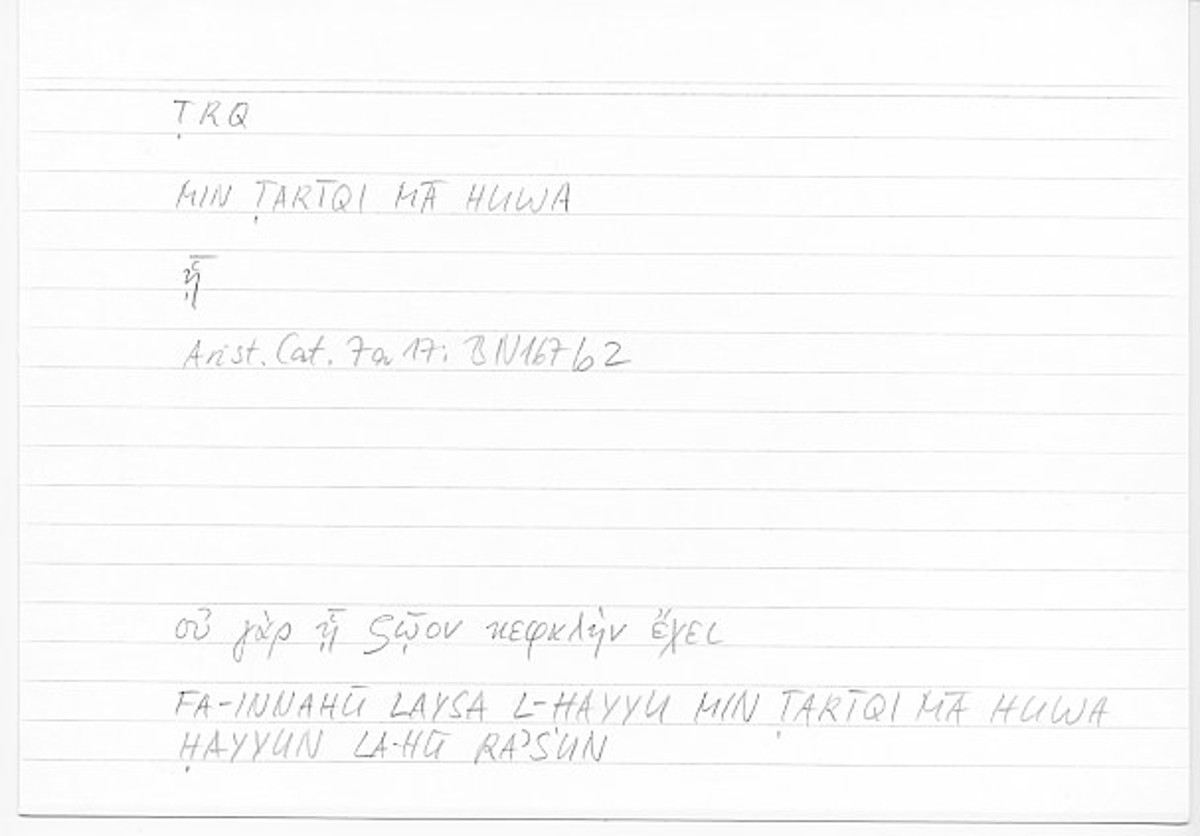 ṬRQ
MIN ṬARĪQI MĀ HUWA
ᾗ
Arist. Cat. 7a 17: BN167b2
οὐ γὰρ ᾗ ζῷον κεφαλὴν ἔχει
FA-INNAHŪ LAYSA L-ḤAYYU MIN ṬARĪQI MĀ HUWA
ḤAYYUN LA-HŪ RAʾSUN